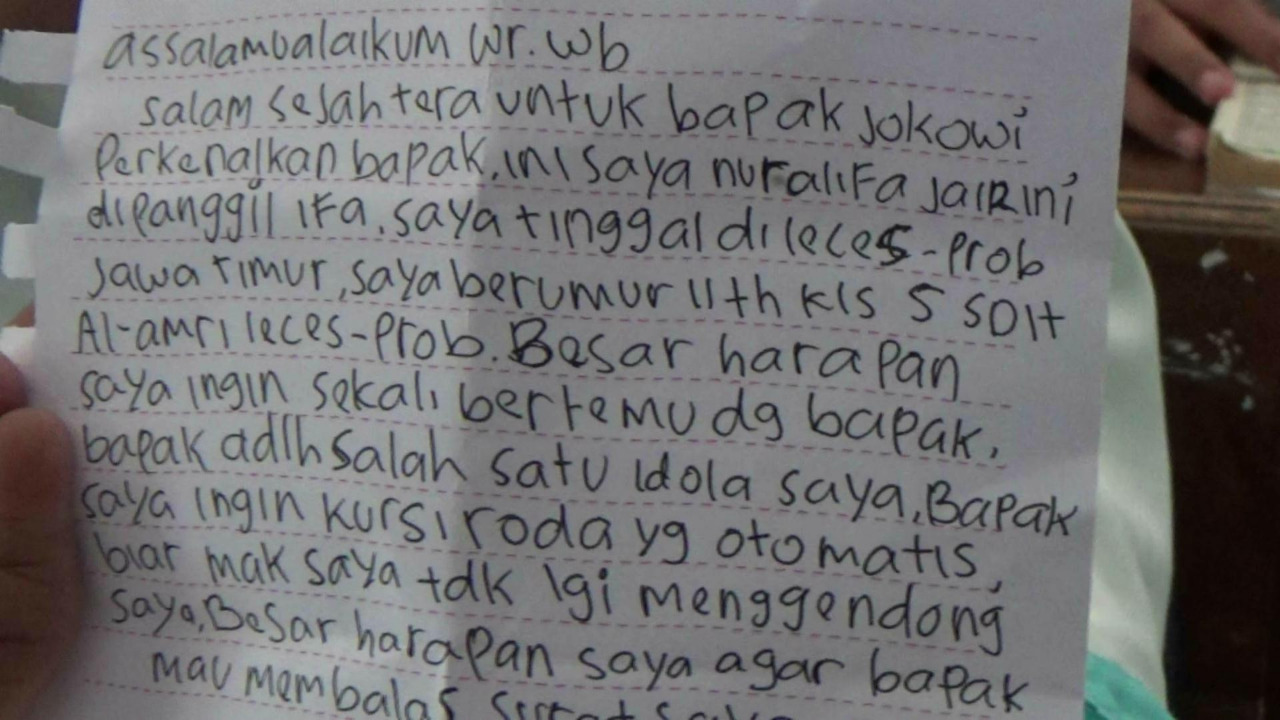 assalamualaikum wr. wb
salam sejahtera untuk bapak jokowi
Perkenalkan bapak, ini saya nuralifa jairini
dipanggil ifa, saya tinggal di leces-prob
jawa timur, saya berumur 11 th kls 5 SDIt
Al-amri leces-prob. Besar harapan
saya ingin sekali bertemu dg bapak,
bapak adlh salah satu idola saya, Bapak
saya ingin kursi roda yg otomatis,
biar mak saya tdk lgi menggendong
saya, Besar harapan saya agar bapak
mau membalas surat saya